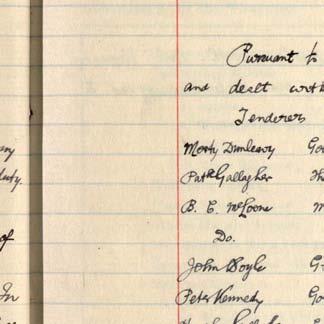 Pursuant to
and dealt with
Tenderers
Morty Dunleavy
Patk Gallagher
B. C. McLoone
Do.
John Boyle
Peter Kennedy
duty.
of
In